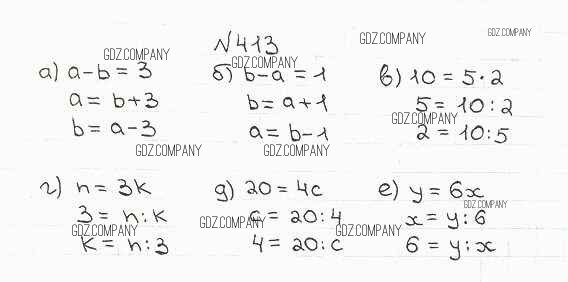 №413
а) a-b = 3
a = b+3
b = a-3
б) b-a = 1
b = a+1
a = b-1
в) 10 = 5·2
5 = 10:2
2 = 10:5
г) n = 3k
3 = n:k
k = n:3
д) 20 = 4c
c = 20:4
4 = 20:c
е) y = 6x
x = y:6
6 = y:x
GDZ.COMPANY
GDZ.COMPANY
GDZ.COMPANY
GDZ.COMPANY
GDZ.COMPANY
GDZ.COMPANY
GDZ.COMPANY
GDZ.COMPANY
GDZ.COMPANY
GDZ.COMPANY
GDZ.COMPANY